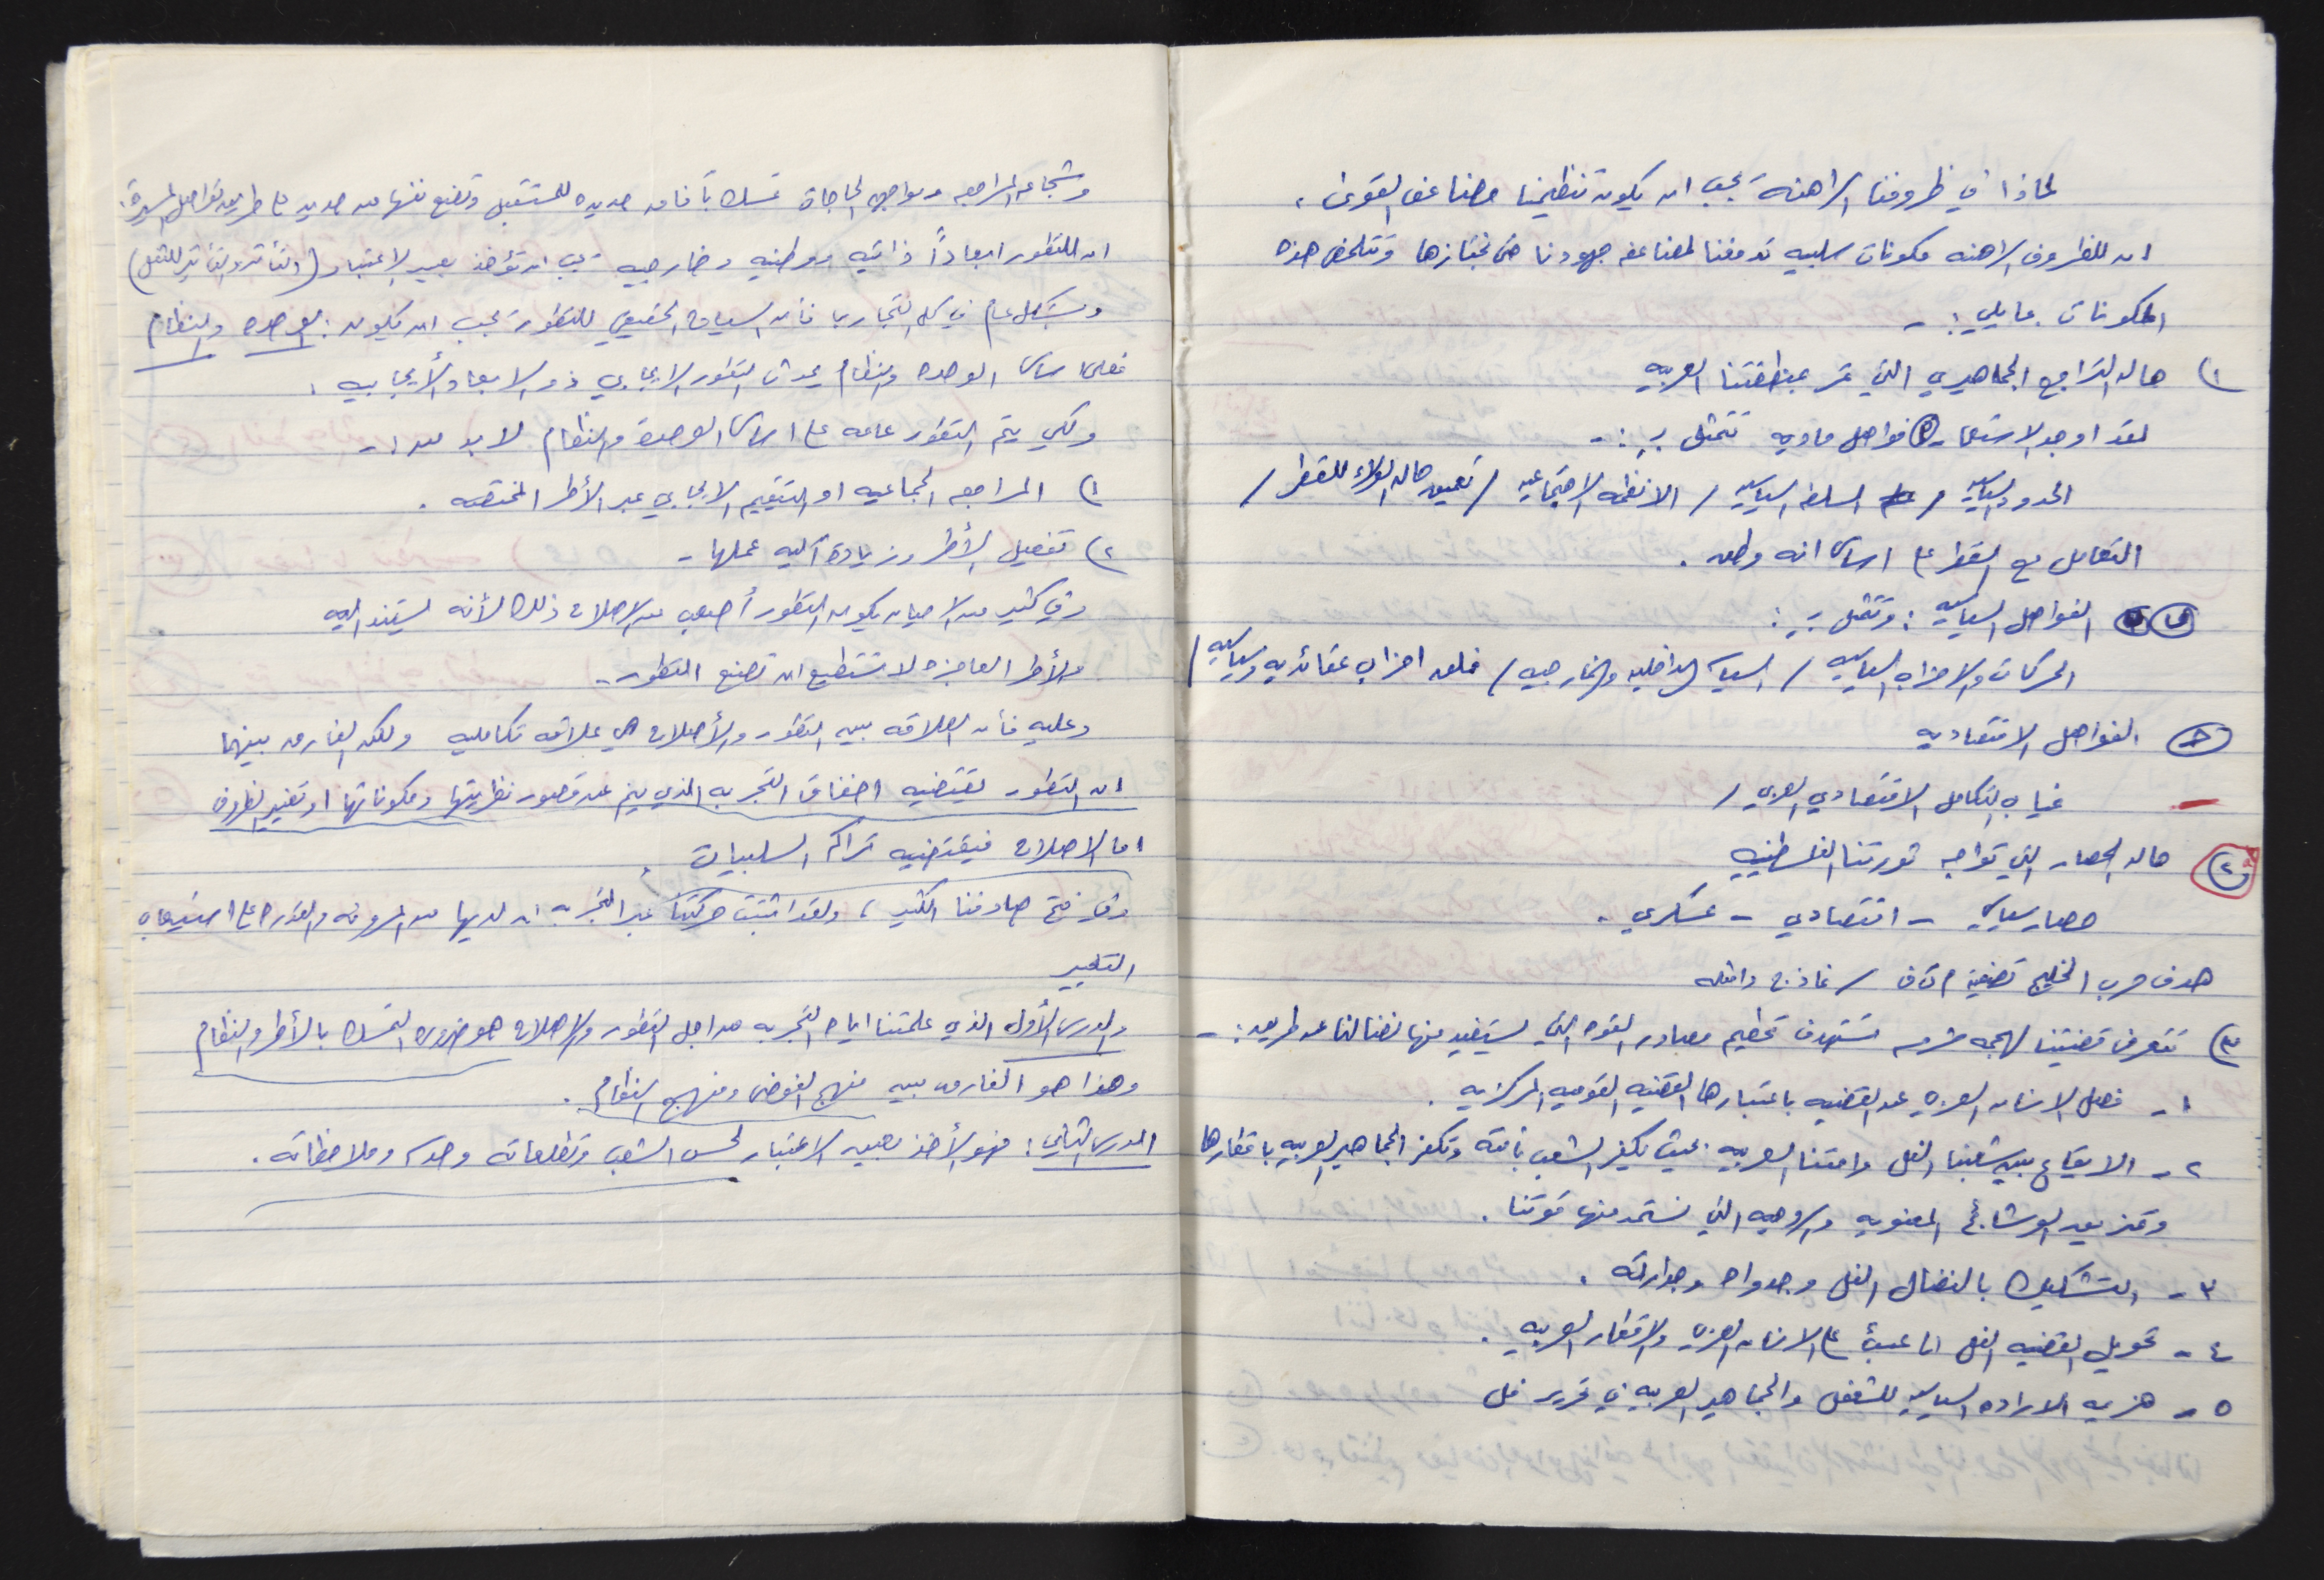 لماذا في ظروفنا الراهنة يجب ان يكون تنظيمنا مضاعف القوى،
ان للظروف الراهنه مكونات سلبيه تدفعنا لمضاعفه جهودنا حتى نجتازها وتتلخص هذه
المكونات بما يلي :-
١) حاله التراجع الجماهيري التي تمر بمنطقتنا العربيه
لقد اوجد الاستعمار فواصل ماديه تتمثل بـ :-
الحدود السياسيه / السلطه السياسيه / الانظمه الاجتماعيه / تعميق حاله الولاء للقطر /
التعامل مع القطر على اساس انه وطن .
الفواصل السياسيه : وتتمثل بـ :
الحركات والاحزاب السياسيه / السياسه الداخليه والخارجيه / خلق احزاب عقائديه وسياسيه /
الفواصل الاقتصاديه
- غياب التكامل الاقتصادي العربي /
٢) حاله الحصار التي تواجه ثورتنا الفلسطينيه
حصار سياسي - اقتصادي - عسكري .
هدف حرب الخليج تصفية م ت ف / نماذج وامثله
٣) تتعرض قضيتنا لهجمه شرسه تستهدف تحطيم مصادر القوه التي يستفيد منها نضالنا عن طريق :-
١- فصل الانسان العربي عن القضيه باعتبارها القضيه القوميه المركزيه .
٢- الايقاع بين شعبنا الفل وامتنا العربيه بحيث يكفر الشعب بأمته وتكفر الجماهير العربيه باقطارها
وتمزيق الوشائج المعنويه والروحيه التي نستمد منها قوتنا .
٣- التشكيك بالنضال الفل وجدواه وجدارته .
٤- تحويل القضيه الفل الى عبئ على الانسان العربي والاقطار العربيه .
٥- هزيمه الاراده السياسيه للشعفل والجماهير العربيه في تحرير فل
وشجاعه المراجعه ومواجهه الحاجات تمسك بآفاق جديده للمستقبل وتضع نفسها من جديد على طريق تواصل المسيرة.
ان للتطور ابعاداً ذاتيه ووطنيه وخارجيه يجب ان تؤخذ بعين الاعتبار (التأثر والتأثير للتفل)
وبشكل عام في كل التجارب فأن السياق الحقيقي للتطور يجب ان يكون : الوحده والنظام
فعلى اساس الوحده والنظام يحدث التطور الايجابي ذو الابعاد الأيجابيه .
ولكي يتم التطور عامه على اساس الوحدة والنظام لابد من :-
١) المراجعه الجماعيه او التقييم الايجابي عبر الأطر المختصه .
٢) تفعيل الأطر وزيادة آليه عملها -
وفي كثير من الاحيان يكون التطور أصعب من الاصلاح ذلك لأنه يستند اليه
والأطر العاجزه لا تستطيع ان تصنع التطور -
وعليه فأن العلاقه بين التطور والأصلاح هي علاقه تكامليه ولكن الفارق بينهما
ان التطور يقتضيه اخفاق التجربه الذي ينم عن قصور نظريتها ومكوناتها او تغيير الظروف
اما الاصلاح فيقتضيه تراكم السلبيات .
وفي فتح صادفنا الكثير ، ولقد اثبتت حركتنا عبر التجربه ان لديها من المرونه والقدره على استيعاب
التغيير
والدرس الأول الذي علمتنا اياه التجربه من اجل التطور والاصلاح هو ضروره التمسك بالأطر والنظام
وهذا هو الفارق بين منهج الفوضى ومنهج النظام .
الدرس الثاني : فهو الأخذ بعين الاعتبار لحس الشعب وتطلعاته وحدسه وملاحظاته .